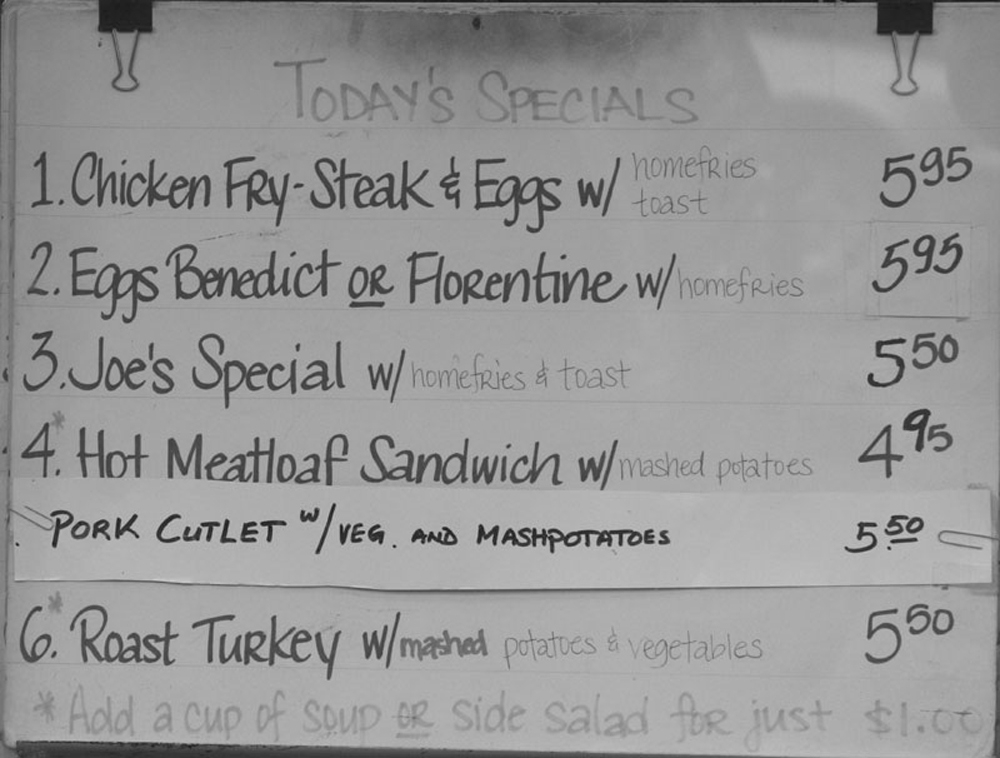 TODAY'S SPECIALS
1. Chicken FRy-Steak & Eggs w/ homefRies toast 5 95
2. Eggs Benedict oR FloRentine w/ homefRies 5 95
3. Joe's Special w/ homefRies & toast 5 50
4.* Hot Meatloaf Sandwich w/ mashed potatoes 4 95
PORK CUTLET W/ VEG. AND MASHPOTATOES 5.50
6.* Roast TuRkey w/ mashed potatoes & vegetables 5 50
* Add a cup of soup oR side salad foR just $1.00